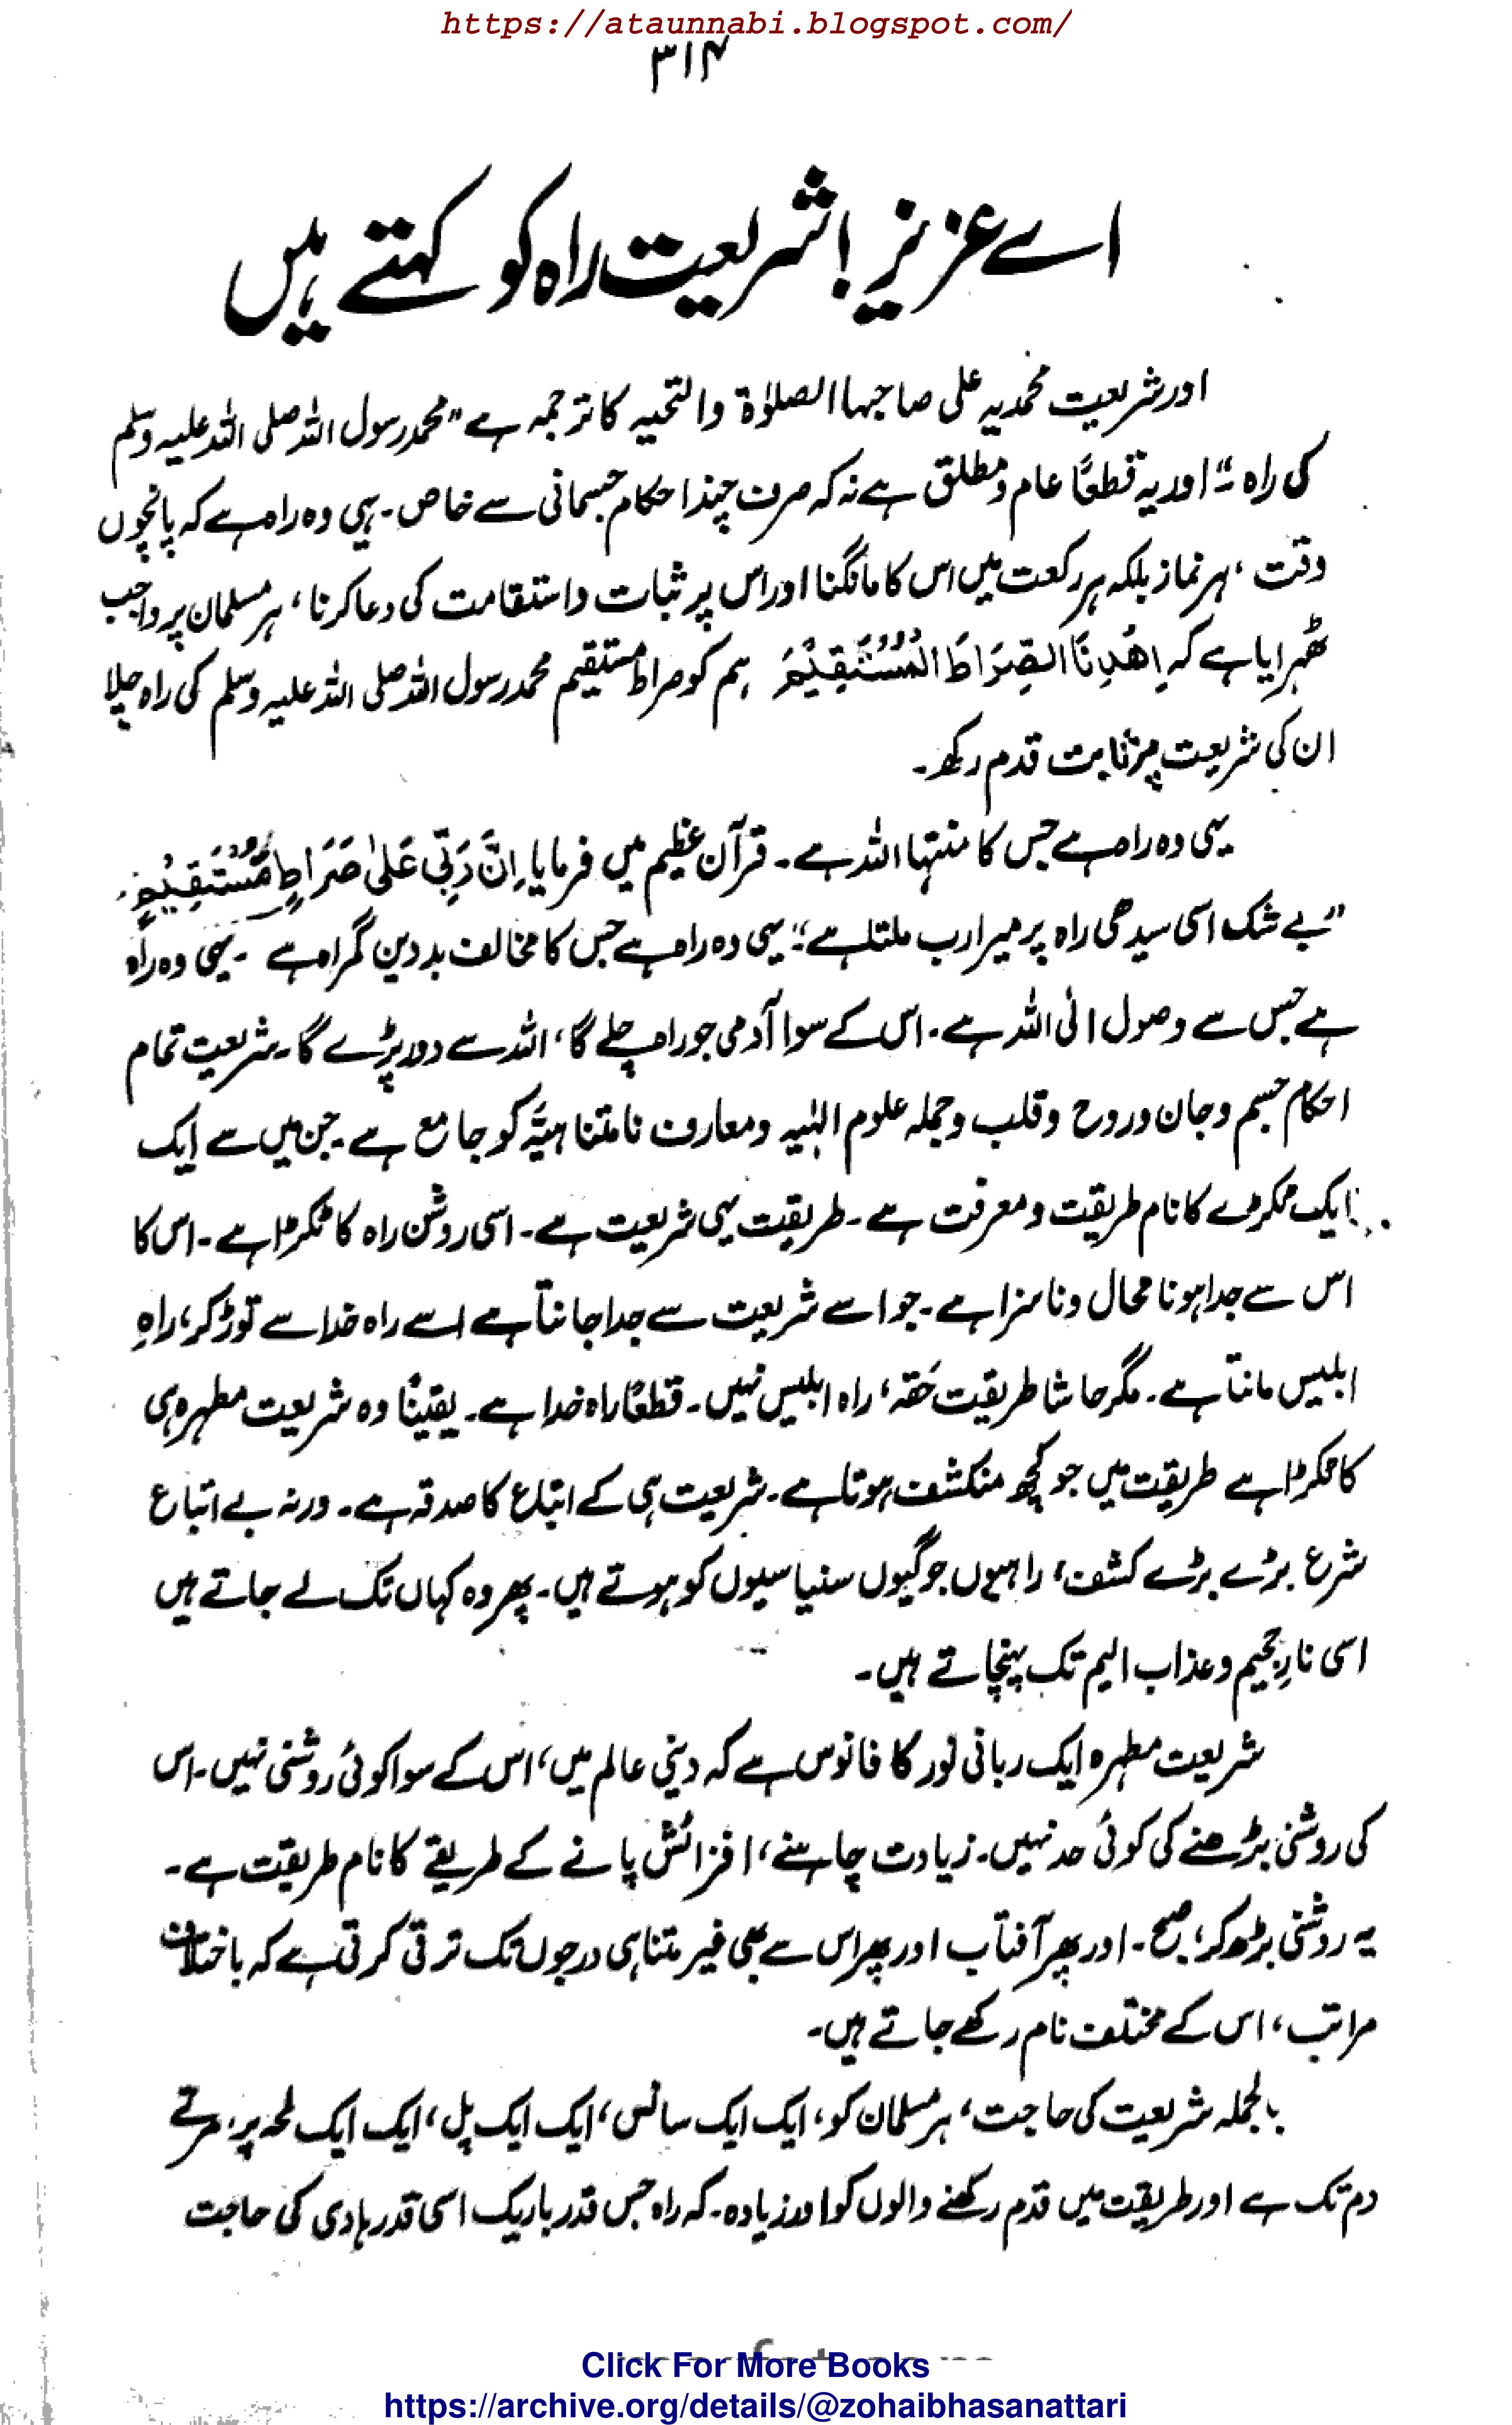 https://ataunnabi.blogspot.com/
۳۱۴
اے عزیز! شریعت راہ کو کہتے ہیں
اور شریعت محمدیہ علی صاحبہا الصلوٰۃ والتحیہ کا ترجمہ ہے "محمد رسول اللہ صلی اللہ علیہ وسلم
کی راہ"۔ اور یہ قطعًا عام و مطلق ہے نہ کہ صرف چند احکام جسمانی سے خاص۔ یہی وہ راہ ہے کہ پانچوں
وقت، ہر نماز بلکہ ہر رکعت میں اس کا مانگنا اور اس پر ثبات و استقامت کی دعا کرنا، ہر مسلمان پر واجب
ٹھہرایا ہے کہ اِھْدِنَا الصِّرَاطَ الْمُسْتَقِیْمَ ہم کو صراط مستقیم محمد رسول اللہ صلی اللہ علیہ وسلم کی راہ چلا
ان کی شریعت پر ثابت قدم رکھ۔
یہی وہ راہ ہے جس کا منتہا اللہ ہے۔ قرآن عظیم میں فرمایا اِنَّ رَبِّی عَلیٰ صَرَاطٍ مُّسْتَقِیْمٍ۔
"بے شک اسی سیدھی راہ پر میرا رب ملتا ہے"؛ یہی وہ راہ ہے جس کا مخالف بددین گمراہ ہے ۔ یہی وہ راہ
ہے جس سے وصول الی اللہ ہے۔ اس کے سوا آدمی جو راہ چلے گا، اللہ سے دور پڑے گا۔ شریعت تمام
احکام جسم و جان و روح و قلب و جملہ علوم الٰہیہ و معارف نامتناہیہ کو جامع ہے۔ جن میں سے ایک
ایک ٹکڑے کا نام طریقت و معرفت ہے۔ طریقت یہی شریعت ہے۔ اسی روشن راہ کا ٹکڑا ہے۔ اس کا
اس سے جدا ہونا محال و ناسزا ہے۔ جو اسے شریعت سے جدا جانتا ہے اسے راہ خدا سے توڑ کر، راہِ
ابلیس مانتا ہے۔ مگر حاشا طریقت حَقہ، راہ ابلیس نہیں۔ قطعًا راہ خدا ہے۔ یقینًا وہ شریعت مطہرہ ہی
کا ٹکڑا ہے طریقت میں جو کچھ منکشف ہوتا ہے۔ شریعت ہی کے اتباع کا صدقہ ہے۔ ورنہ بے اتباع
شرع بڑے بڑے کشف، راہبوں جوگیوں سنیاسیوں کو ہوتے ہیں۔ پھر وہ کہاں تک لے جاتے ہیں
اسی نارِ جحیم و عذاب الیم تک پہنچاتے ہیں۔
شریعت مطہرہ ایک ربانی نور کا فانوس ہے کہ دینی عالم میں، اس کے سوا کوئی روشنی نہیں۔ اس
کی روشنی بڑھنے کی کوئی حد نہیں۔ زیادت چاہنے، افزائش پانے کے طریقے کا نام طریقت ہے۔
یہ روشنی بڑھ کر، صبح۔ اور پھر آفتاب اور پھر اس سے بھی غیر متناہی درجوں تک ترقی کرتی ہے کہ باختلاف
مراتب، اس کے مختلف نام رکھے جاتے ہیں۔
بالجملہ شریعت کی حاجت، ہر مسلمان کو، ایک ایک سانس، ایک ایک پل، ایک ایک لمحہ پر، مرتے
دم تک ہے اور طریقت میں قدم رکھنے والوں کو اور زیادہ۔ کہ راہ جس قدر باریک اسی قدر ہادی کی حاجت
Click For More Books
https://archive.org/details/@zohaibhasanattari